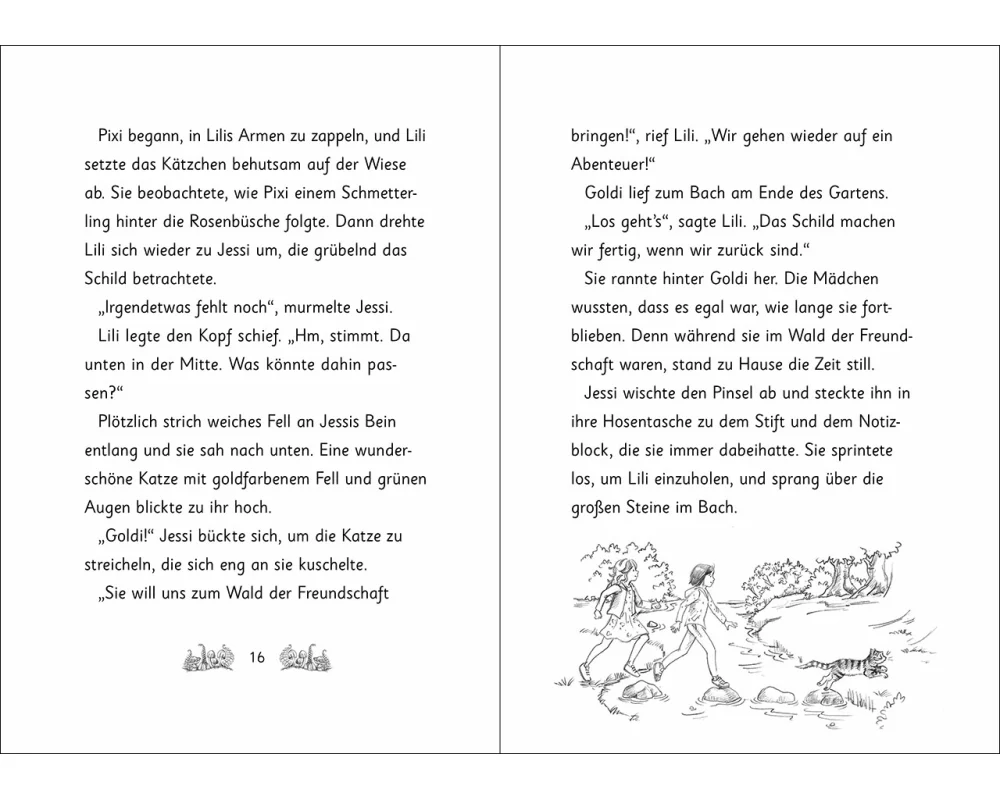 Pixi begann, in Lilis Armen zu zappeln, und Lili
setzte das Kätzchen behutsam auf der Wiese
ab. Sie beobachtete, wie Pixi einem Schmetter-
ling hinter die Rosenbüsche folgte. Dann drehte
Lili sich wieder zu Jessi um, die grübelnd das
Schild betrachtete.
„Irgendetwas fehlt noch“, murmelte Jessi.
Lili legte den Kopf schief. „Hm, stimmt. Da
unten in der Mitte. Was könnte dahin pas-
sen?“
Plötzlich strich weiches Fell an Jessis Bein
entlang und sie sah nach unten. Eine wunder-
schöne Katze mit goldfarbenem Fell und grünen
Augen blickte zu ihr hoch.
„Goldi!“ Jessi bückte sich, um die Katze zu
streicheln, die sich eng an sie kuschelte.
„Sie will uns zum Wald der Freundschaft
16
bringen!“, rief Lili. „Wir gehen wieder auf ein
Abenteuer!“
Goldi lief zum Bach am Ende des Gartens.
„Los geht’s“, sagte Lili. „Das Schild machen
wir fertig, wenn wir zurück sind.“
Sie rannte hinter Goldi her. Die Mädchen
wussten, dass es egal war, wie lange sie fort-
blieben. Denn während sie im Wald der Freund-
schaft waren, stand zu Hause die Zeit still.
Jessi wischte den Pinsel ab und steckte ihn in
ihre Hosentasche zu dem Stift und dem Notiz-
block, die sie immer dabeihatte. Sie sprintete
los, um Lili einzuholen, und sprang über die
großen Steine im Bach.